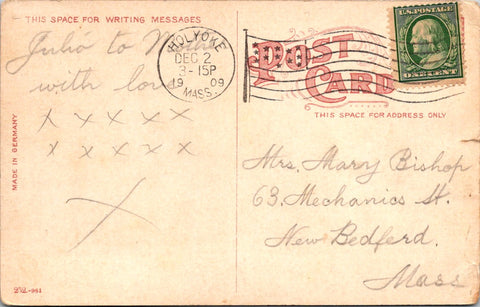 THIS SPACE FOR WRITING MESSAGES
Julia to Mother
with love
x x x x x
x x x x x
X
MADE IN GERMANY
252.-961
HOLYOKE
DEC 2
3-15P
1909
MASS.
POST CARD
THIS SPACE FOR ADDRESS ONLY
U.S. POSTAGE
ONE CENT
Mrs. Mary Bishop
63. Mechanics St.
New Bedford.
Mass